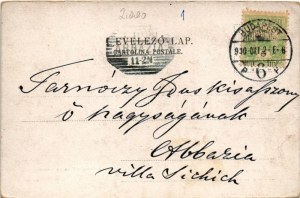 2000
1
LEVELEZŐ-LAP.
CARTOLINA POSTALE.
11-2N
BUDAPEST
Tarnóczy Idus kisasszony
ő nagyságának
Abbazia
villa Sichich